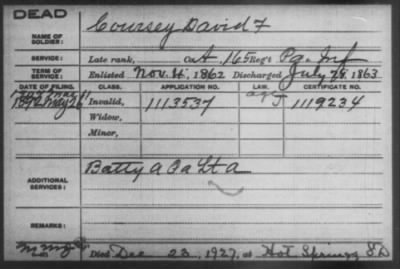 DEAD
NAME OF SOLDIER: Coursey David F
SERVICE: Late rank, Co. A, 165 Reg't Pa. Inf
TERM OF SERVICE: Enlisted Nov. 11, 1862 Discharged July 28, 1863
DATE OF FILING. CLASS. APPLICATION NO. LAW. CERTIFICATE NO.
1892 May 26 Invalid, 1113537 1119234
Widow,
Minor,
ADDITIONAL SERVICES: Batty A Pa Lt A
REMARKS:
Died Dec 23, 1927, at Hot Springs S D